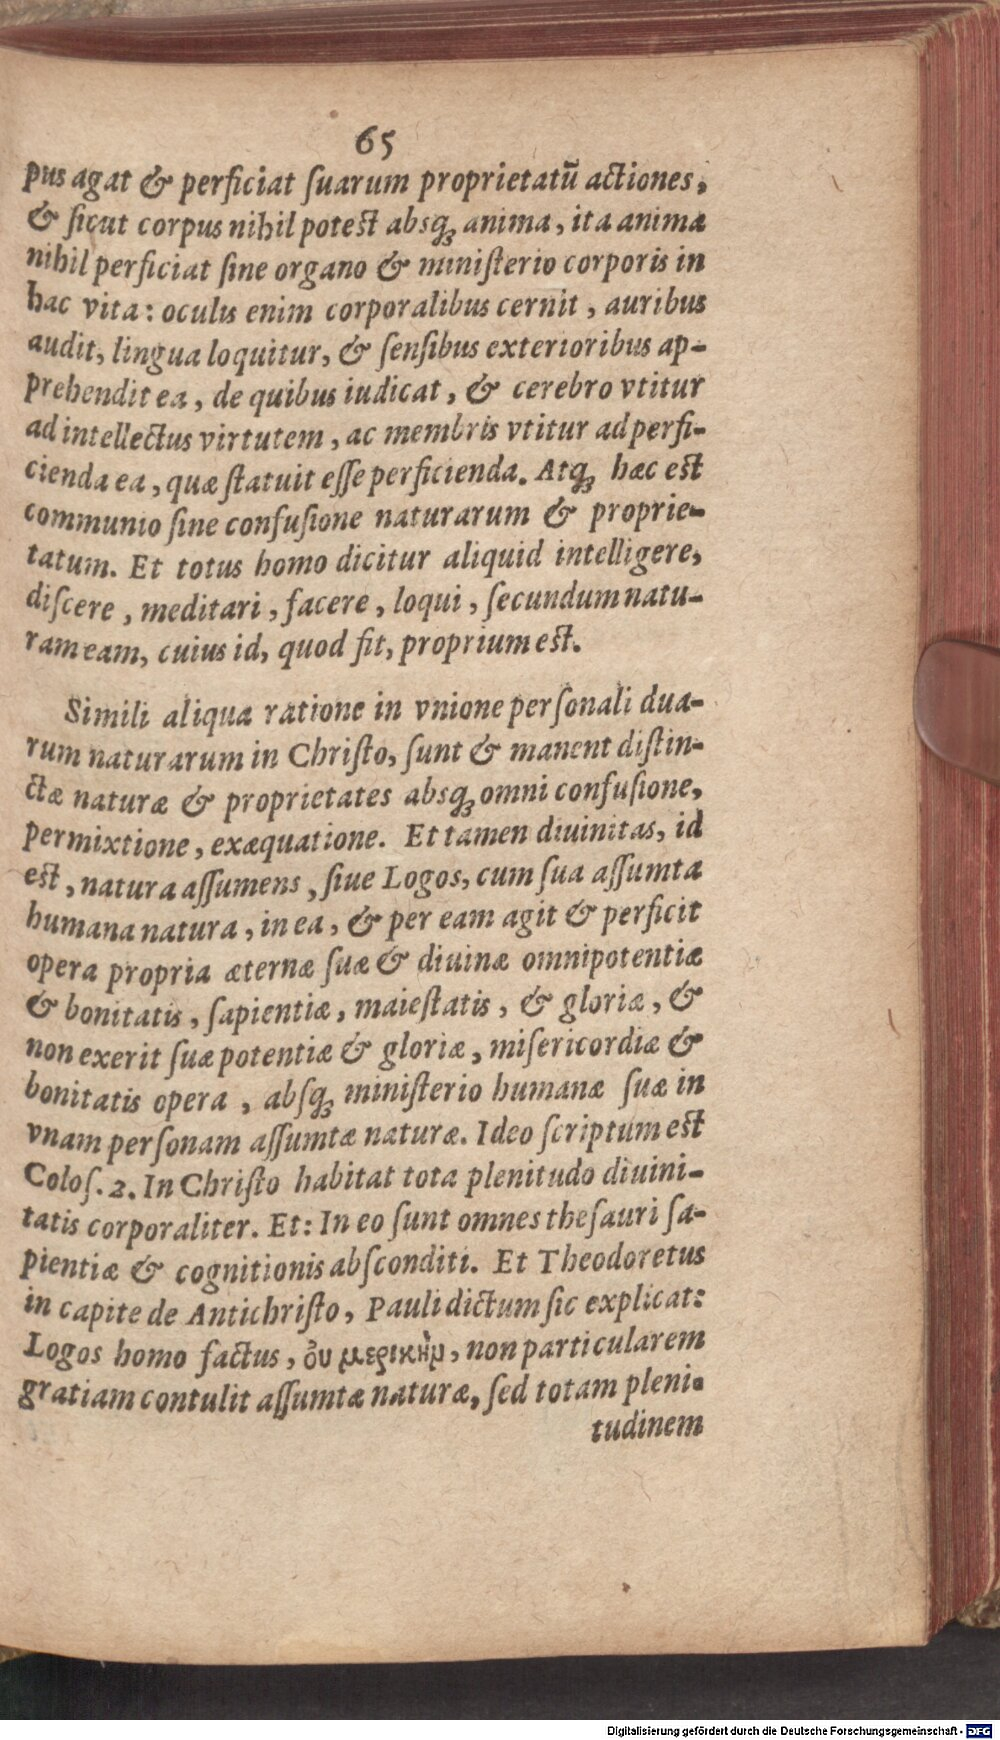 65
pus agat & perficiat ſuarum proprietatū actiones,
& ſicut corpus nihil potest absq; anima, ita anima
nihil perficiat ſine organo & miniſterio corporis in
hac vita: oculis enim corporalibus cernit, auribus
audit, lingua loquitur, & ſenſibus exterioribus ap-
prehendit ea, de quibus iudicat, & cerebro vtitur
ad intellectus virtutem, ac membris vtitur ad perfi-
cienda ea, quæ ſtatuit eſſe perficienda. Atq; hæc est
communio ſine confuſione naturarum & proprie-
tatum. Et totus homo dicitur aliquid intelligere,
diſcere, meditari, facere, loqui, ſecundum natu-
ram eam, cuius id, quod fit, proprium est.
Simili aliqua ratione in vnione perſonali dua-
rum naturarum in Chriſto, ſunt & manent diſtin-
ctæ naturæ & proprietates absq; omni confuſione,
permixtione, exæquatione. Et tamen diuinitas, id
est, natura aſſumens, ſiue Logos, cum ſua aſſumta
humana natura, in ea, & per eam agit & perficit
opera propria æternæ ſuæ & diuinæ omnipotentiæ
& bonitatis, ſapientiæ, maieſtatis, & gloriæ, &
non exerit ſuæ potentiæ & gloriæ, miſericordiæ &
bonitatis opera, abſq; miniſterio humanæ ſuæ in
vnam perſonam aſſumtæ naturæ. Ideo ſcriptum est
Coloſ. 2. In Chriſto habitat tota plenitudo diuini-
tatis corporaliter. Et: In eo ſunt omnes theſauri ſa-
pientiæ & cognitionis abſconditi. Et Theodoretus
in capite de Antichriſto, Pauli dictum ſic explicat:
Logos homo factus, ὀυ μερικὴμ, non particularem
gratiam contulit aſſumtæ naturæ, ſed totam pleni-
tudinem
Digitalisierung gefördert durch die Deutsche Forschungsgemeinschaft - DFG